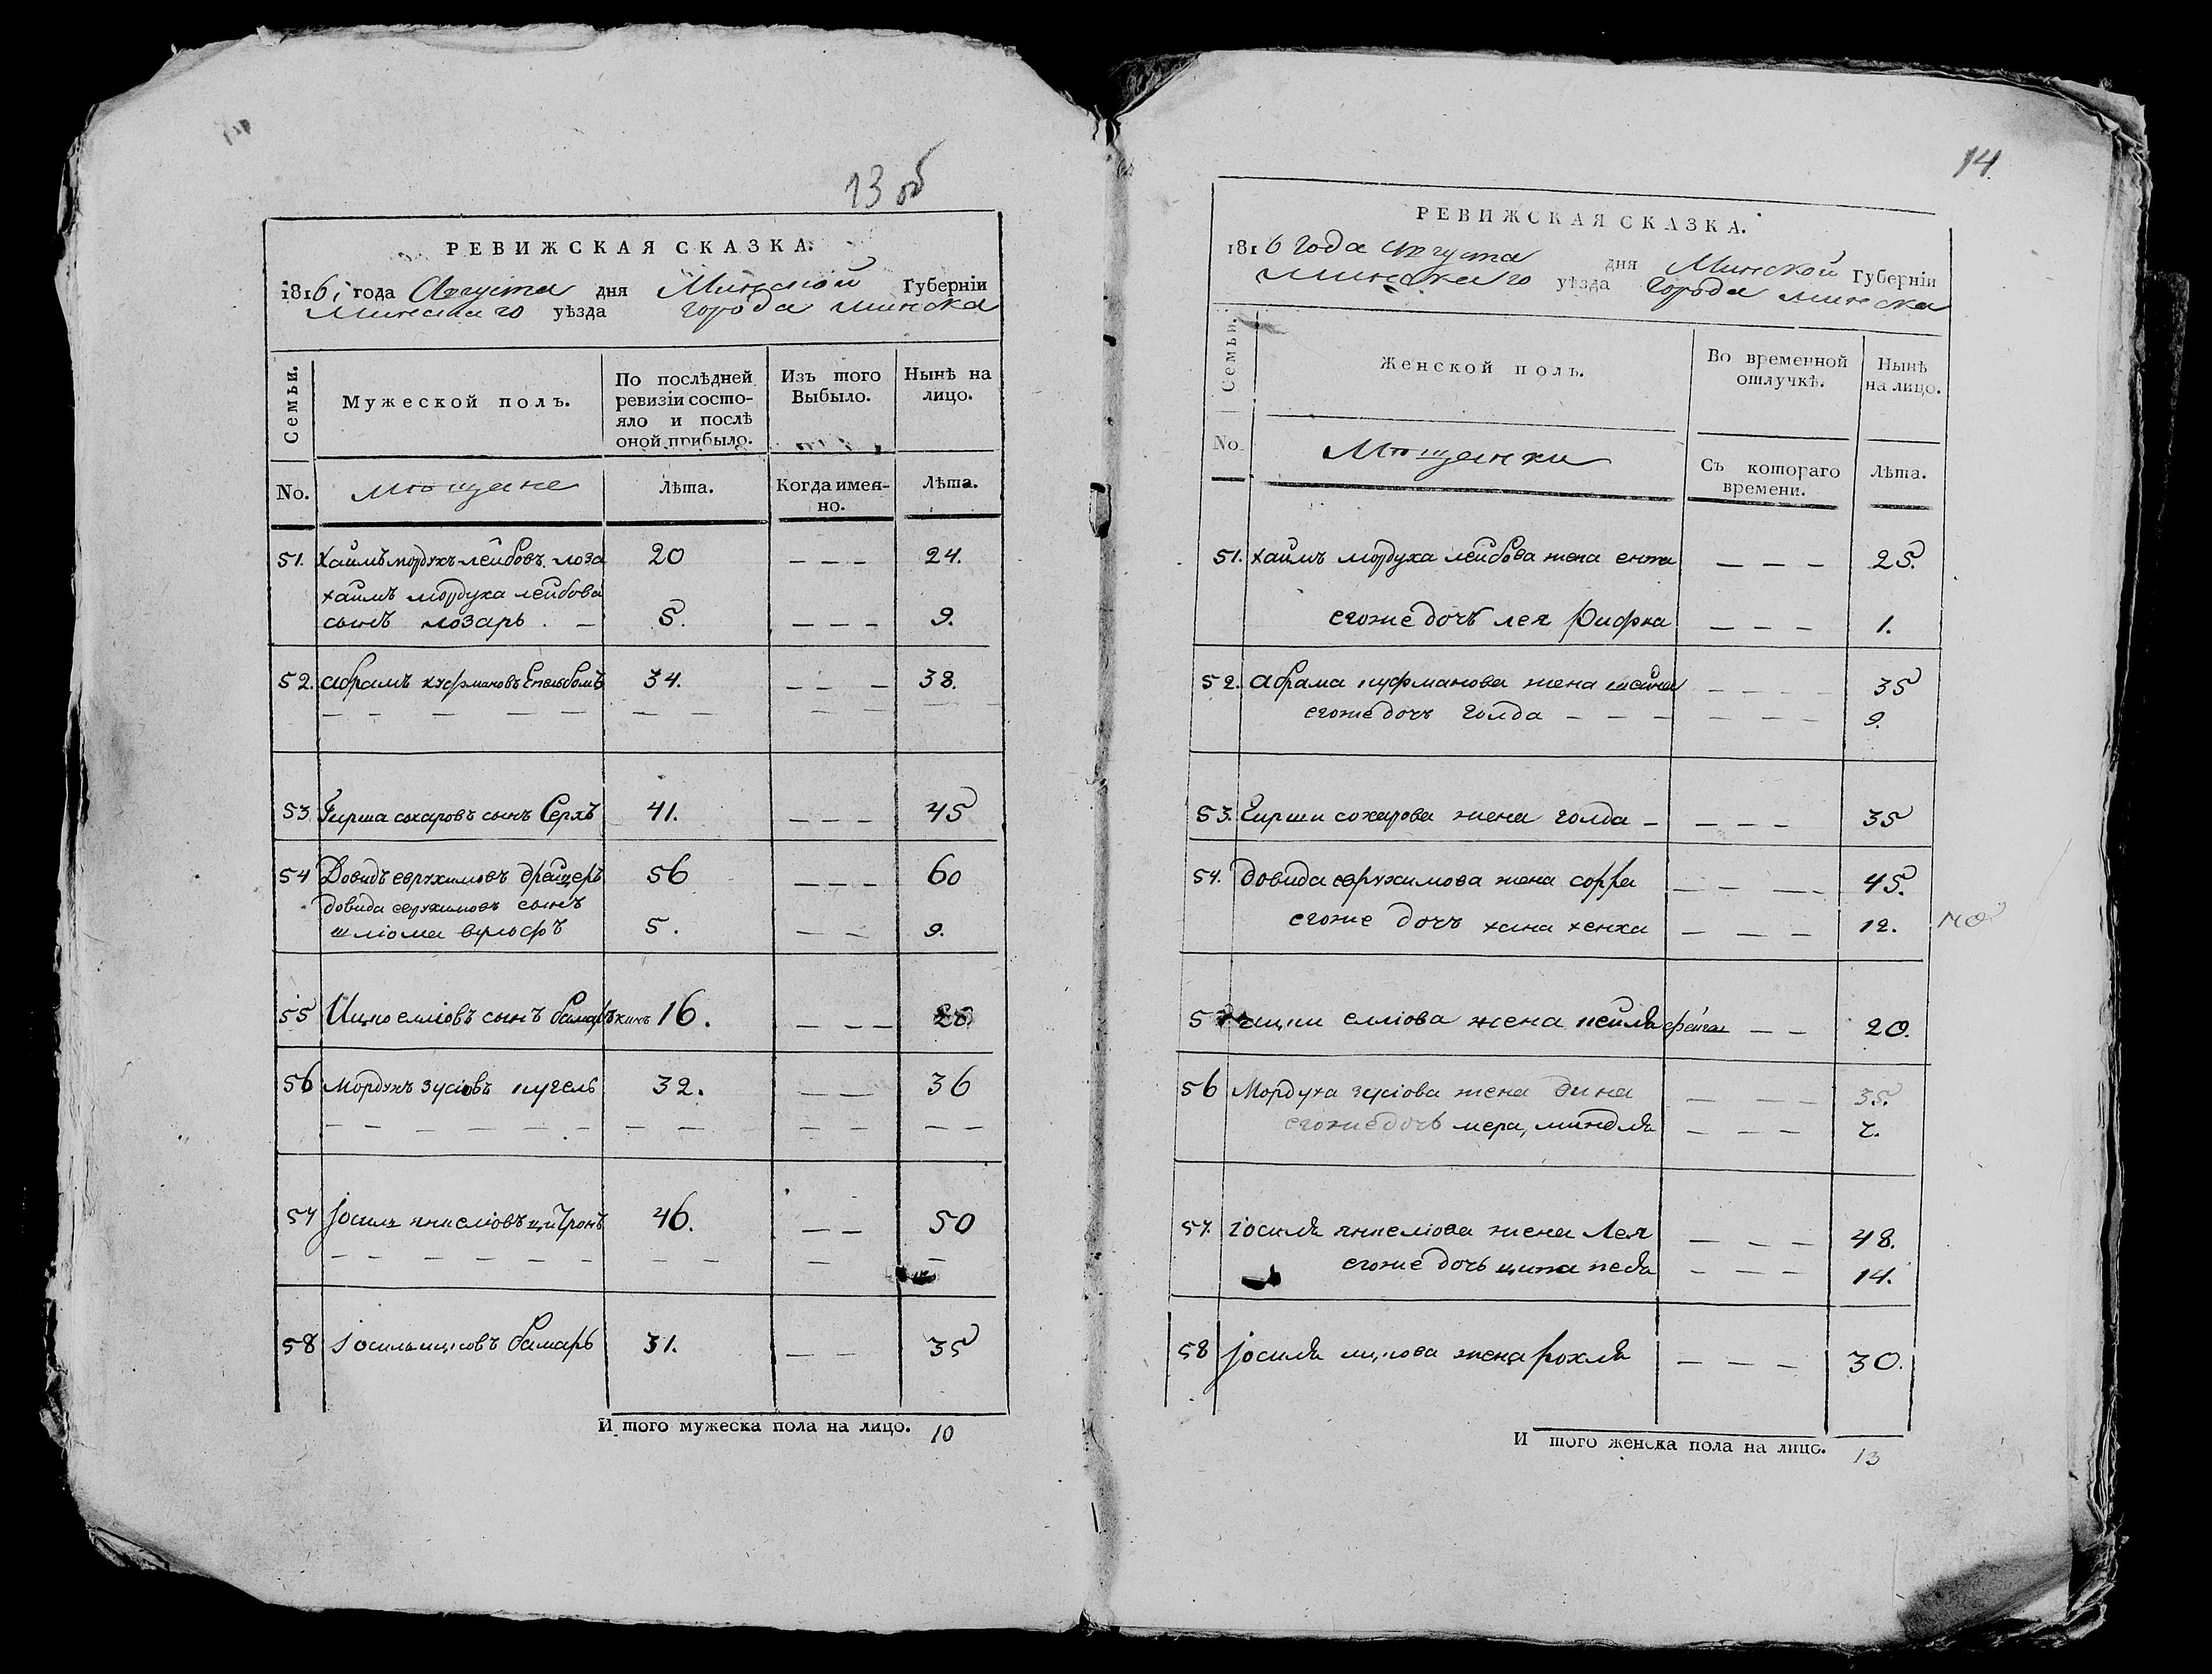 13 об
РЕВИЖСКАЯ СКАЗКА.
1816 года Августа дня Минской Губерніи
Минскаго уѣзда города Минска
Семьи. Мужеской полъ. По послѣдней ревизіи состояло и послѣ оной прибыло. Изъ того Выбыло. Нынѣ на лицо.
No. Мѣщане Лѣта. Когда имен-но. Лѣта.
51. Хаимъ мордухъ лейбовъ лоза 20 — — — 24.
хаимъ мордуха лейбова
сынъ лозарь . — 5. — — — 9.
52. Абрамъ 34. — — — 38.
53 Гирша сохаровъ сынъ Серхъ 41. — — — 45
54 Довидъ еврухимовъ 56 — — — 60
довида еврухимовъ сынъ
шліома вульфъ 5. — — — 9.
55 Ицко еліовъ сынъ 16. — — —
56 Мордухъ зусіовъ кугель 32. — — 36
57 Іосиль янкеліовъ цитронъ 46. — — 50
58 Іосиль ицковъ бамарь 31. — — 35
И того мужеска пола на лицо. 10
14
РЕВИЖСКАЯ СКАЗКА.
1816 года августа дня Минской Губерніи
Минскаго уѣзда города минска
Семьи. Женской полъ. Во временной отлучкѣ. Нынѣ на лицо.
No. Мѣщанки Съ котораго времени. Лѣта.
51. хаимъ мордуха лейбова жена ента — — — 25.
егоже дочь лея Рифка — — — 1.
52. Абрама жена — — — — 35
егоже дочь голда — — — — — — — 9.
53. Гирши сохарова жена голда — — — — 35
54. Довида еврухимова жена сорра — — — — 45.
егоже дочь хана хенха — — — 12.
ицки еліова жена пейля фейга — — 20.
56 Мордуха зусіова жена Дина — — — 35.
егоже дочь мера, миндля — — — 7.
57. Іосиля янкеліова жена Лея — — — 48.
егоже дочь — — — 14.
58 Іосиля ицкова жена рохля — — — 30.
И того женска пола на лицо. 13